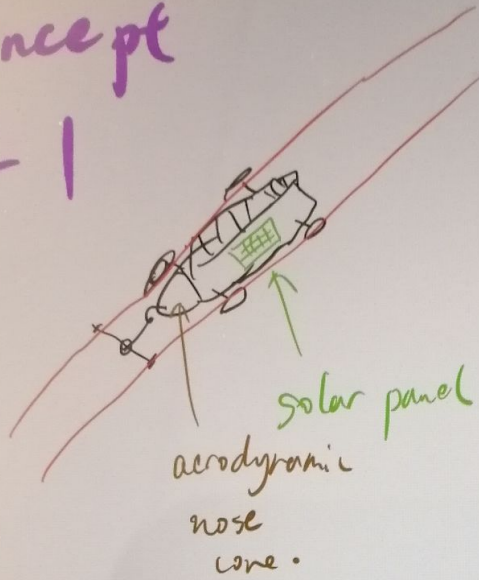 ncept
- 1
solar panel
aerodynamic
nose
cone.